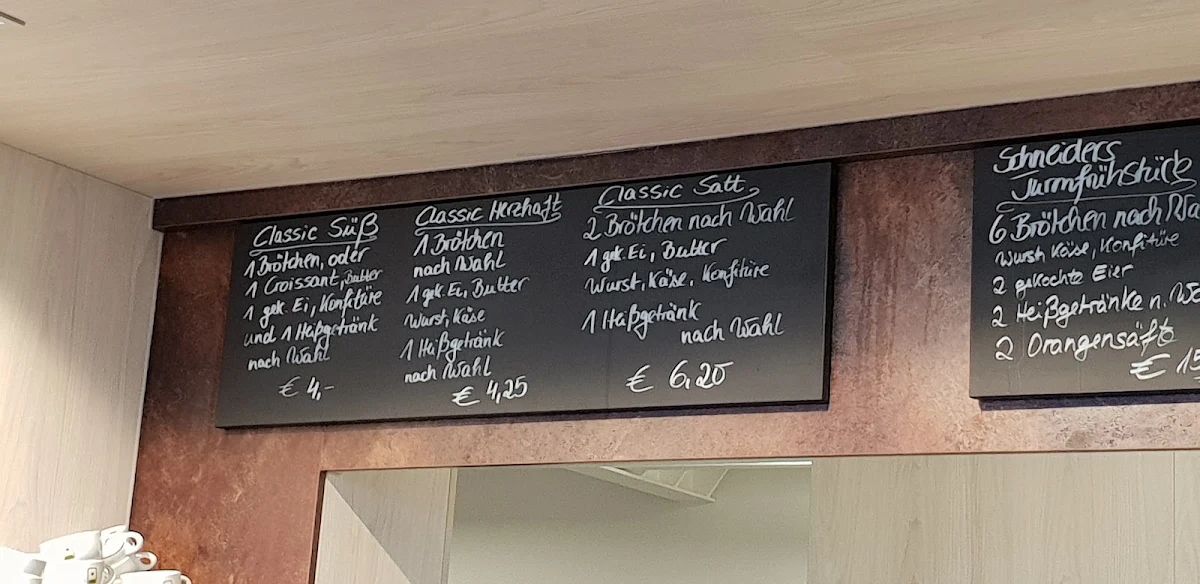 Classic Süß
1 Brötchen, oder
1 Croissant, Butter
1 gek. Ei, Konfitüre
und 1 Heißgetränk
nach Wahl
€ 4,-
Classic Herzhaft
1 Brötchen
nach Wahl
1 gek. Ei, Butter
Wurst, Käse
1 Heißgetränk
nach Wahl
€ 4,25
Classic Satt
2 Brötchen nach Wahl
1 gek. Ei, Butter
Wurst, Käse, Konfitüre
1 Heißgetränk
nach Wahl
€ 6,20
Schneiders
Turmfrühstück
6 Brötchen nach
Wurst Käse, Konfitüre
2 gekochte Eier
2 Heißgetränke n.
2 Orangensäfte
€ 15